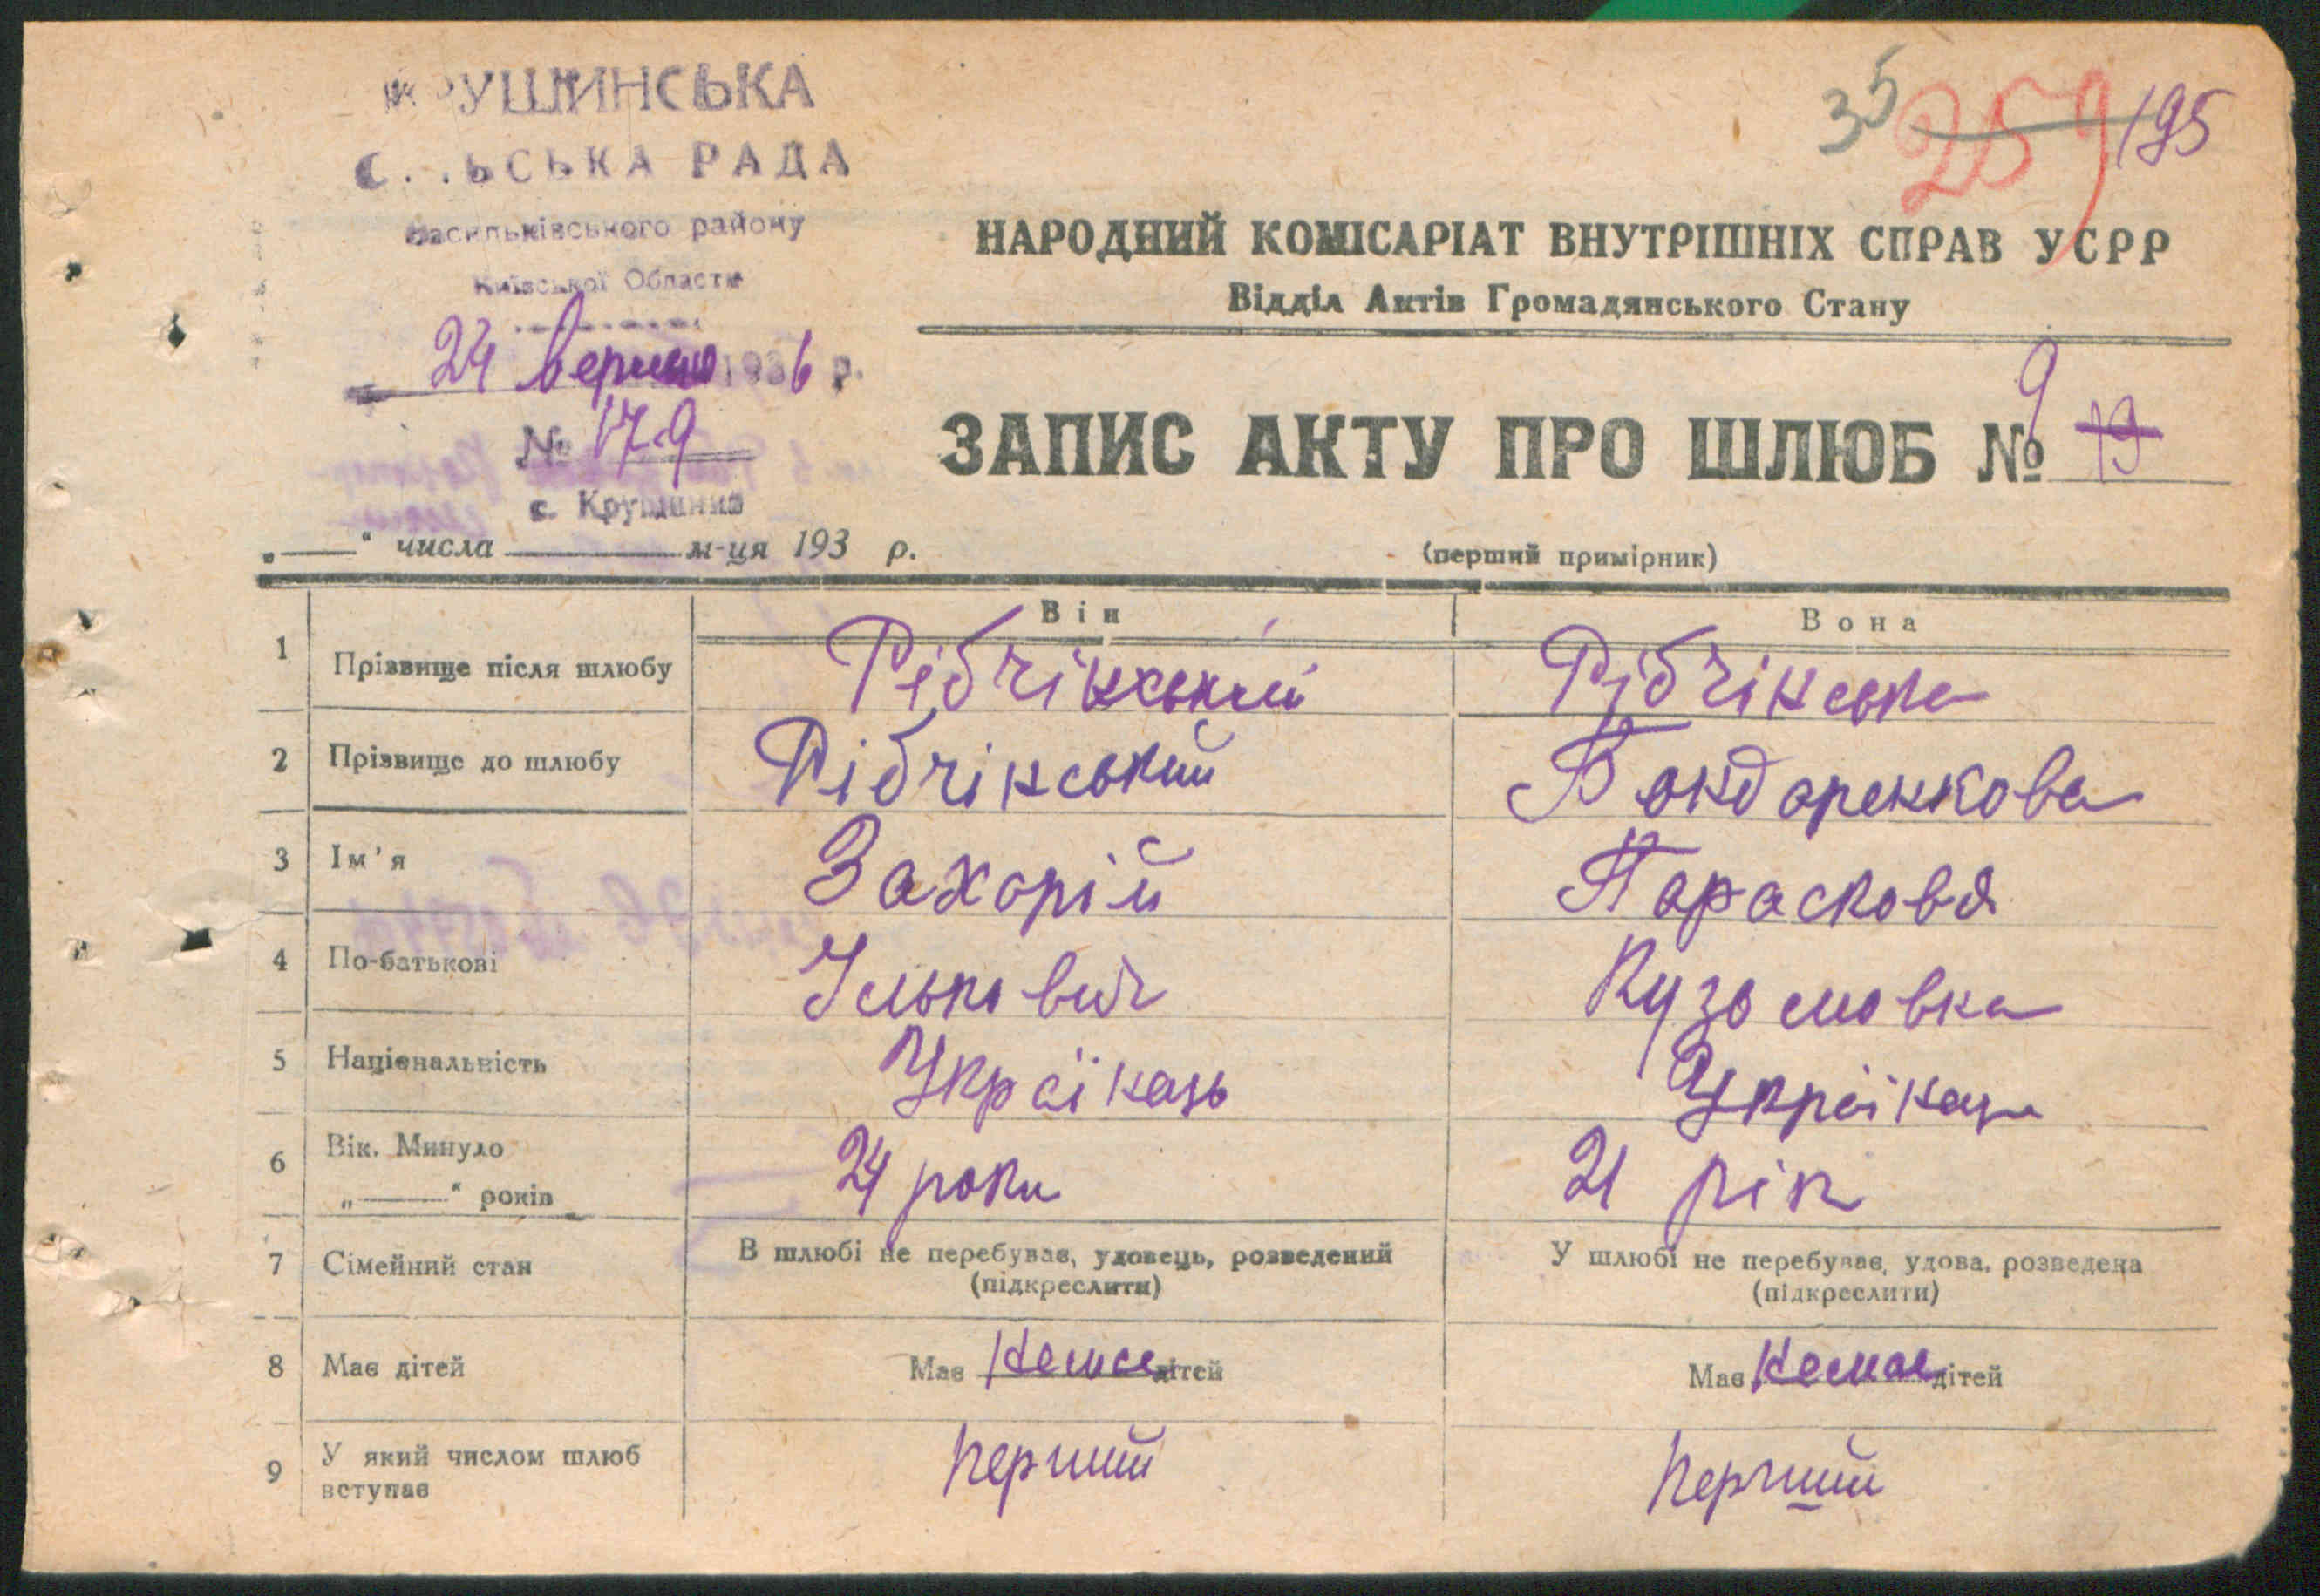 КРУШИНСЬКА
С..ЬСЬКА РАДА
Васильківського району
Київської Области
24 вересня 1936 р.
№ 179
с. Крушинка
35 259 195
НАРОДНИЙ КОМІСАРІАТ ВНУТРІШНІХ СПРАВ УСРР
Відділ Актів Громадянського Стану
ЗАПИС АКТУ ПРО ШЛЮБ № 9 19
„——" числа ———— м-ця 193 р.
(перший примірник)
Він Вона
1 Прізвище після шлюбу Рібчінський Рібчінська
2 Прізвище до шлюбу Рібчінський Бондаренкова
3 Ім'я Захорій Парасковя
4 По-батькові Ількович Кузьмовна
5 Національність Українць Українца
6 Вік. Минуло
„——" років 24 роки 21 рік
7 Сімейний стан В шлюбі не перебував, удовець, розведений У шлюбі не перебував, удова, розведена
(підкреслити) (підкреслити)
8 Має дітей Має немає дітей Має немає дітей
9 У який числом шлюб
вступає Перший Перший